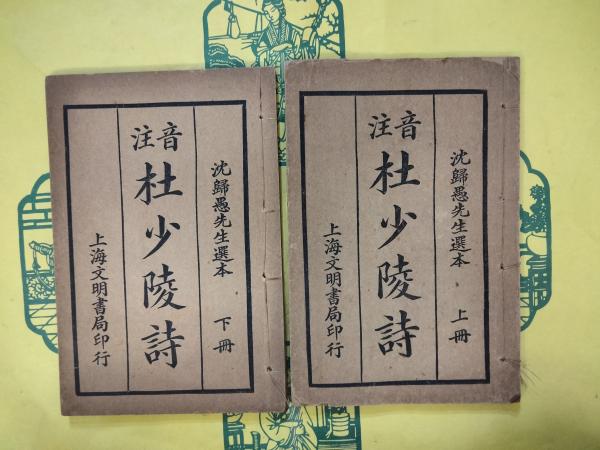 沈歸愚先生選本 上冊
音注
杜少陵詩
上海文明書局印行
沈歸愚先生選本 下冊
音注
杜少陵詩
上海文明書局印行